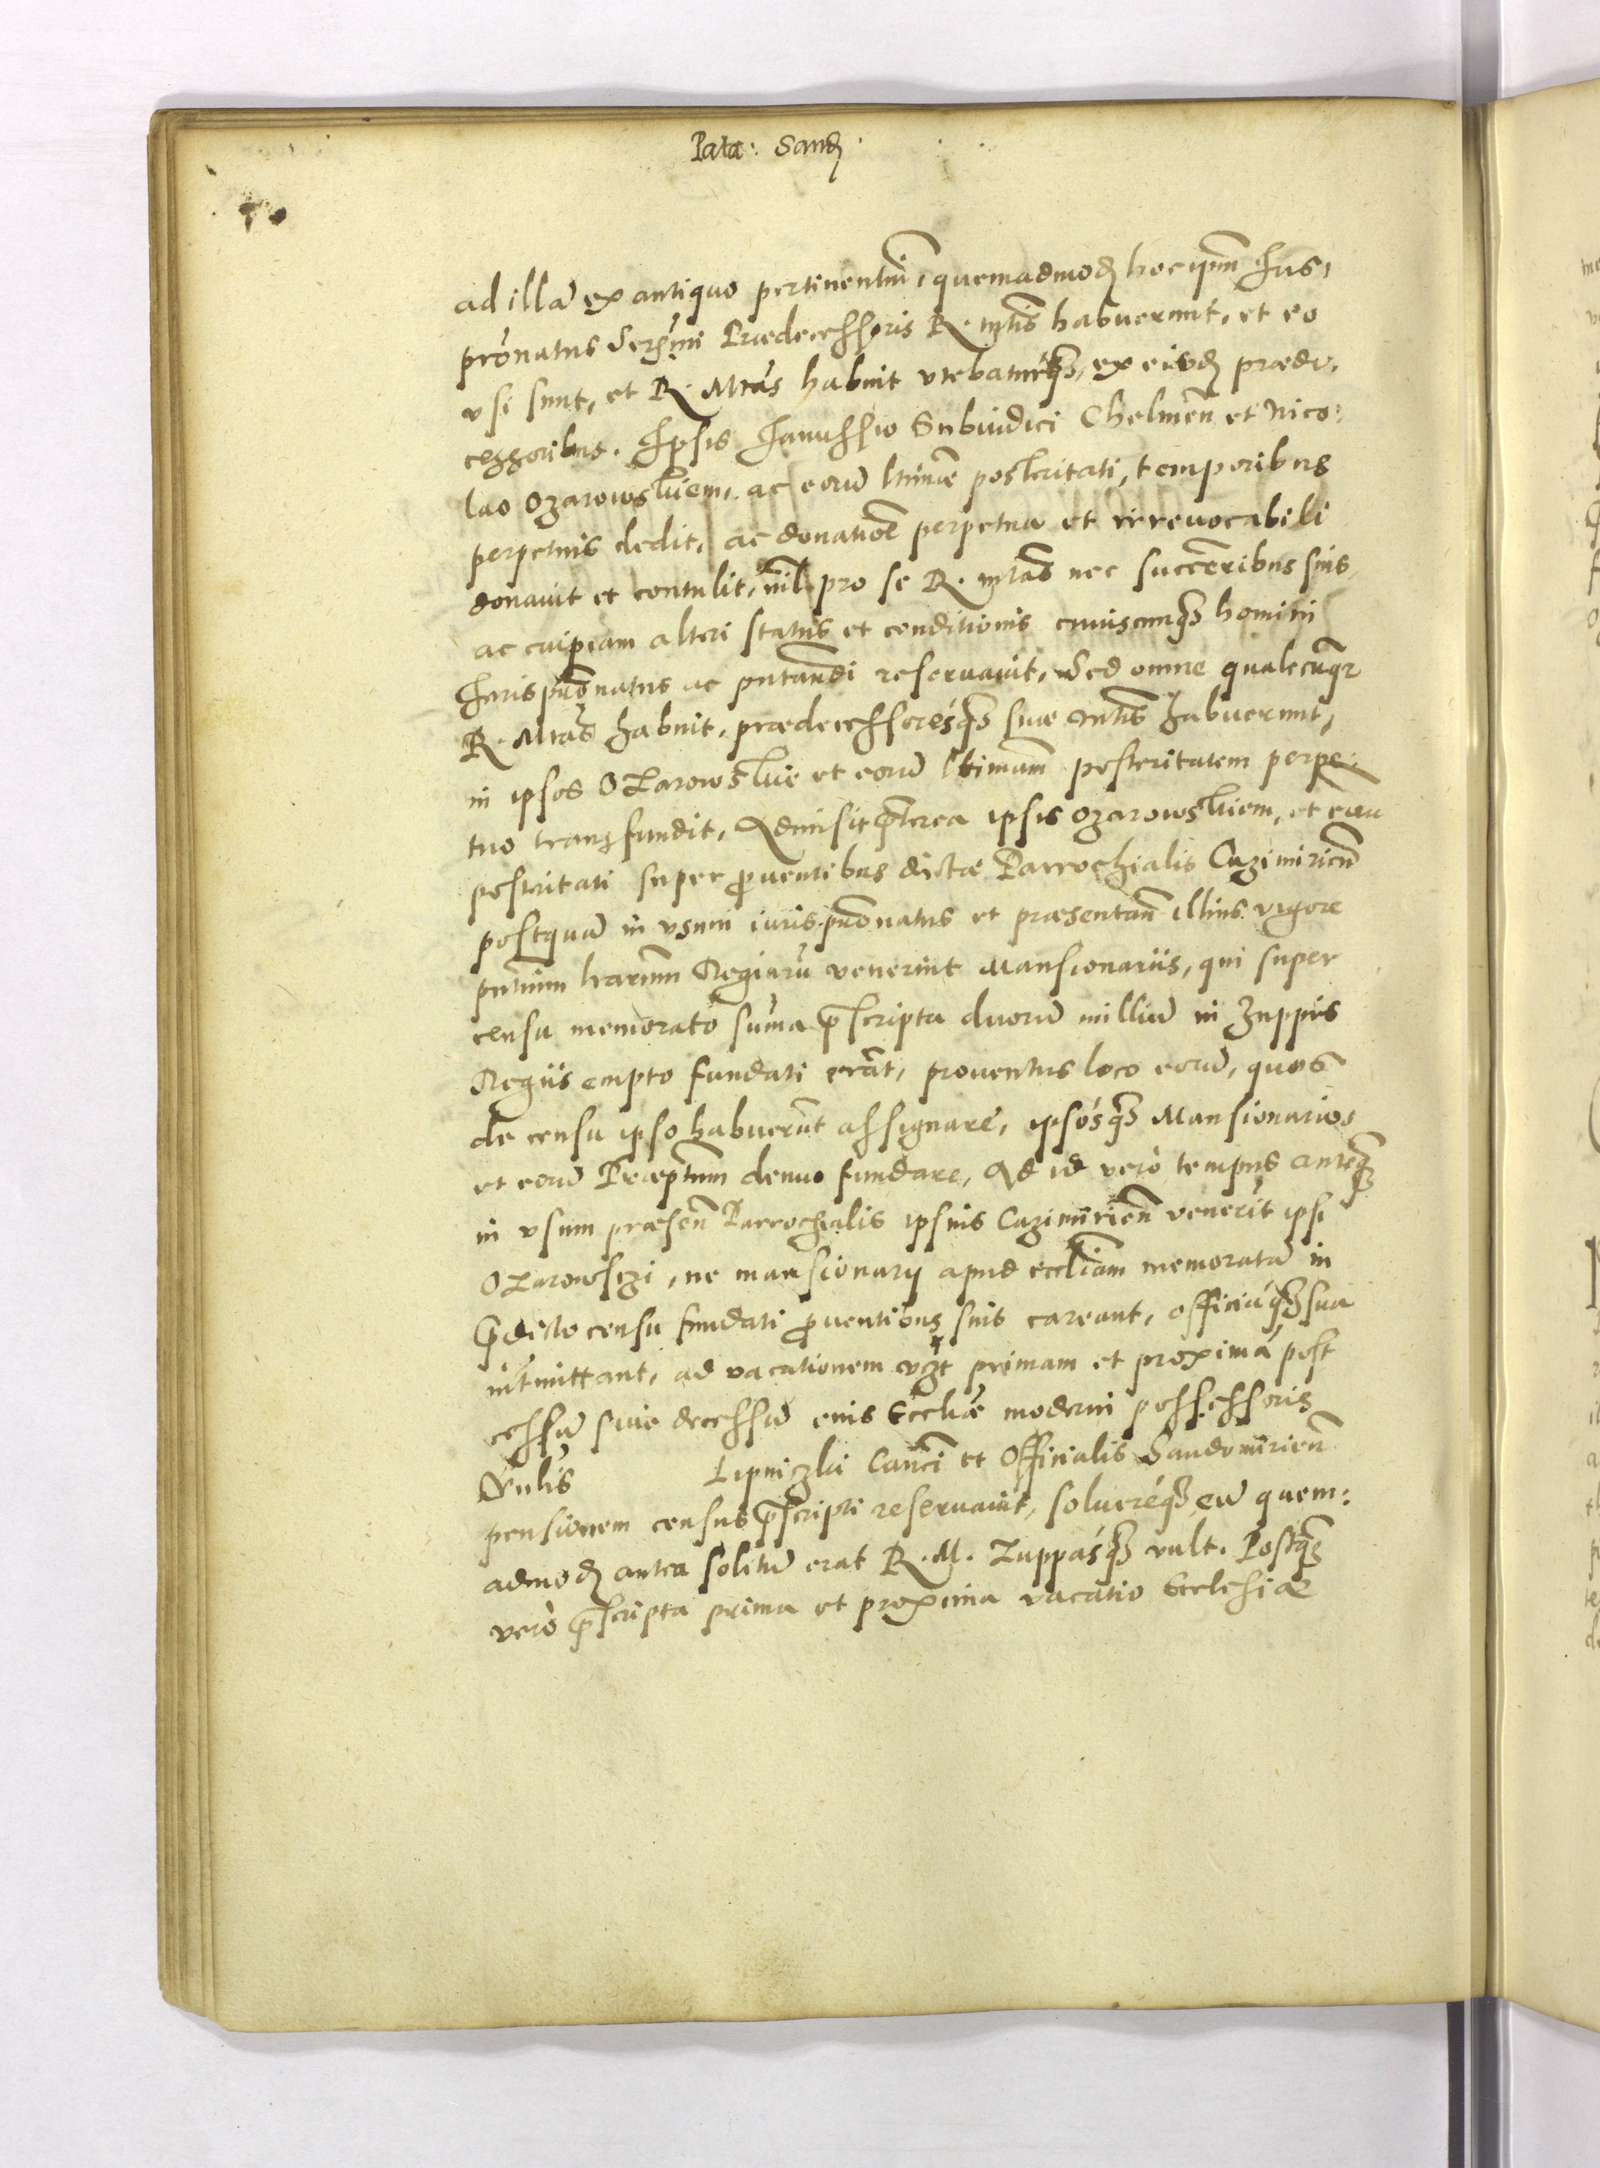 Pala: Sand
ad illā ex antiquo pertinentiū, quemadmod hoc ipm Jus,
prōnatus Serꝫmi Prædecessoris R. Mtis habuerunt, et eo
usi sunt, et R. Mtas habuit utebaturqꝫ, ex eisd præde,
cessoribus. Ipsis Janussio Subiudici Chelmeñ et Nico:
lao Ozarowskiem, ac eorū ltimæ posteritati, temporibus
perpetuis dedit, ac donatiōe perpetua et irrevocabili
donavit et contulit, nil pro se R. Mtas nec succēribus suis
ac cuipiam alteri status et conditionis cuiuscunqꝫ homini
Jurispr̄onatus ac pn̄tandi reservavit, Sed omne qualecūqꝫ
R. Mtas habuit, prædecessoresqꝫ suæ Mtis habuerunt,
in ipsos Ozarowskie et eorū ltimam posteritatem perpe:
tuo transfundit, Admisit p̄terea ipsis Ozarowskiem, et eorū
posteritati super proventibus dictæ Parrochialis Cazimirieñ
postquā in usum iurispr̄onatus et præsentañ illius vigore
pn̄tium l̄rarum Regiarū venerint Mansionariis, qui super
censu memorato sūma p̄scripta duorū milliū in Zuppis
Regiis empto fundati erāt, proventus loco eorū, quos
de censu ipso habuerūt assignare, ipsosqꝫ Mansionarios
et eorū Præptum denuo fundare, Ad id vero tempus anteqꝫ
in usum præseñ Parrochialis ipsius Cazimirieñ venerīt ipsi
Ozarowsczi, ne mansionarij apud eccl̄iam memoratā in
p̄dicto censu fundati proventibus suis careant, officiaqꝫ sua
int̄mittant, ad vacationem vꝫt primam et proximā post
cessū sive decessū eius Eccl̄iæ moderni possessoris
Vn̄lis Lipniczki Cañci et Officialis Sandomirieñ
pensionem census p̄scripti reservavit, solvereqꝫ eū quem:
admod antea solitū erat R. M. Zuppasqꝫ vult. Postqꝫ
vero p̄scripta prima et proxima vacatio Ecclesiæ